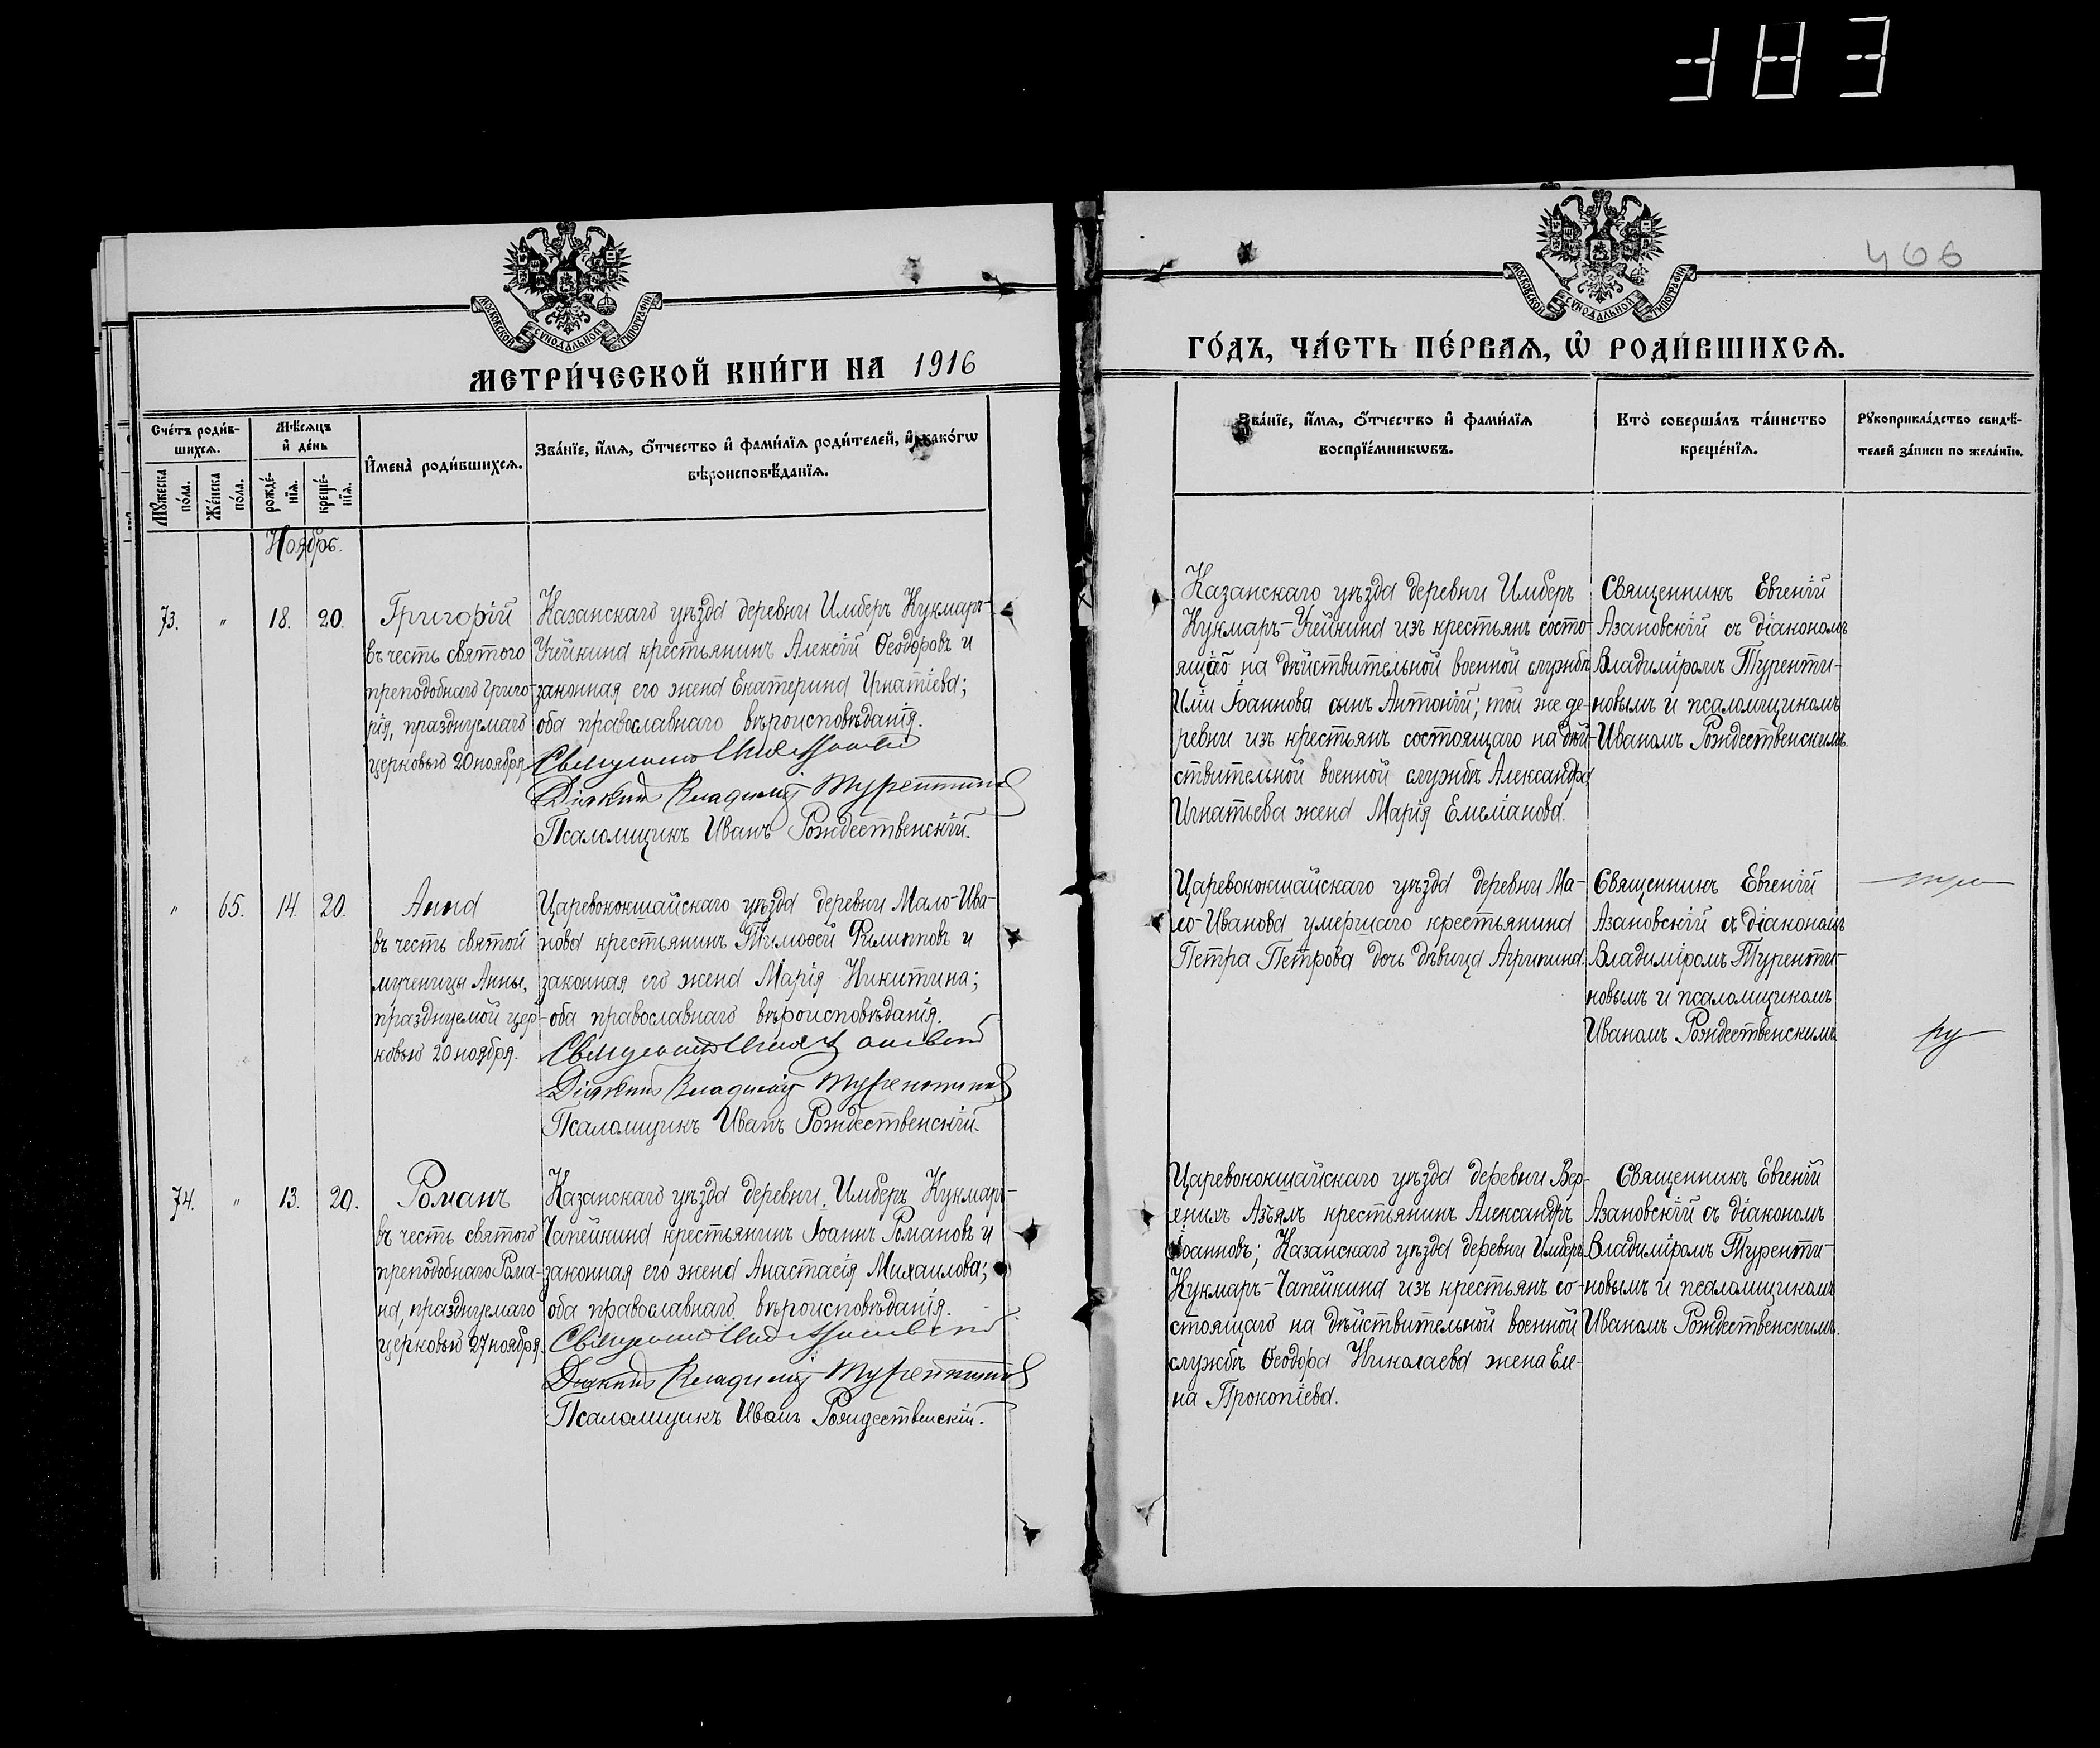 383
406
МОСКОВСКОЙ СѴНОДАЛЬНОЙ ТИПОГРАФІИ
МОСКОВСКОЙ СѴНОДАЛЬНОЙ ТИПОГРАФІИ
МЕТРИ́ЧЕСКОЙ КНИ́ГИ НА 1916
ГО́ДЪ, ЧА́СТЬ ПЕ́РВАѦ, Ѡ҆ РОДИ́ВШИХСѦ.
Сче́тъ роди́в-
шихсѧ.
Мꙋ́жеска
по́ла.
Же́нска
по́ла.
Мѣ́сѧцъ
и҆ де́нь
рожде́-
нїѧ.
креще́-
нїѧ.
И҆мена̀ роди́вшихсѧ.
Зва́нїе, и҆́мѧ, ѻ҆́тчество и҆ фами́лїѧ роди́телей, и҆ како́гѡ
вѣроисповѣ́данїѧ.
Зва́нїе, и҆́мѧ, ѻ҆́тчество и҆ фами́лїѧ
воспрїе́мникѡвъ.
Кто̀ соверша́лъ та́инство
креще́нїѧ.
Рꙋкоприкла́дство свидѣ́-
телей за́писи по жела́нїю.
Ноябрь.
73. " 18. 20.
Григорій
въ честь святого
преподобнаго Григо-
рія, празднуемаго
церковью 20 ноября
Казанскаго уѣзда деревни Имберь Кукмаръ-
Учейкина крестьянинъ Алексій Ѳеодоровъ и
законная его жена Екатерина Игнатіева;
оба православнаго вѣроисповѣданія.
Священникъ
Діаконъ Владиміръ Турентиновъ
Псаломщикъ Иванъ Рождественскій.
Казанскаго уѣзда деревни Имберь
Кукмаръ-Учейкина изъ крестьянъ состо-
ящаго на дѣйствительной военной службѣ
Иліи Іоаннова сынъ Антоній; той же де-
ревни изъ крестьянъ состоящаго на дѣй-
ствительной военной службѣ Александра
Игнатьева жена Марія Емеліанова.
Священникъ Евгеній
Азановскій съ діакономъ
Владиміромъ Туренти-
новымъ и псаломщикомъ
Иваномъ Рождественскимъ.
" 65. 14. 20.
Анна
въ честь святой
мученицы Анны,
празднуемой цер-
ковью 20 ноября.
Царевококшайскаго уѣзда деревни Мало-Ива-
нова крестьянинъ Тимоѳей Филипповъ и
законная его жена Марія Никитина;
оба православнаго вѣроисповѣданія.
Священникъ
Діаконъ Владиміръ Турентиновъ
Псаломщикъ Иванъ Рождественскій.
Царевококшайскаго уѣзда деревни Ма-
ло-Иванова умершаго крестьянина
Петра Петрова дочь дѣвица Агрипина.
Священникъ Евгеній
Азановскій съ діакономъ
Владиміромъ Туренти-
новымъ и псаломщикомъ
Иваномъ Рождественскимъ.
74. " 13. 20.
Романъ
въ честь святого
преподобнаго Рома-
на, празднуемаго
церковью 27 ноября.
Казанскаго уѣзда деревни Имберь Кукмаръ-
Чапейкина крестьянинъ Іоаннъ Романовъ и
законная его жена Анастасія Михаилова;
оба православнаго вѣроисповѣданія.
Священникъ
Діаконъ Владиміръ Турентиновъ
Псаломщикъ Иванъ Рождественскій.
Царевококшайскаго уѣзда деревни Вер-
хнихъ Азъялъ крестьянинъ Александръ
Іоанновъ; Казанскаго уѣзда деревни Имберь
Кукмаръ-Чапейкина изъ крестьянъ со-
стоящаго на дѣйствительной военной
службѣ Ѳеодора Николаева жена Еле-
на Прокопіева.
Священникъ Евгеній
Азановскій съ діакономъ
Владиміромъ Туренти-
новымъ и псаломщикомъ
Иваномъ Рождественскимъ.